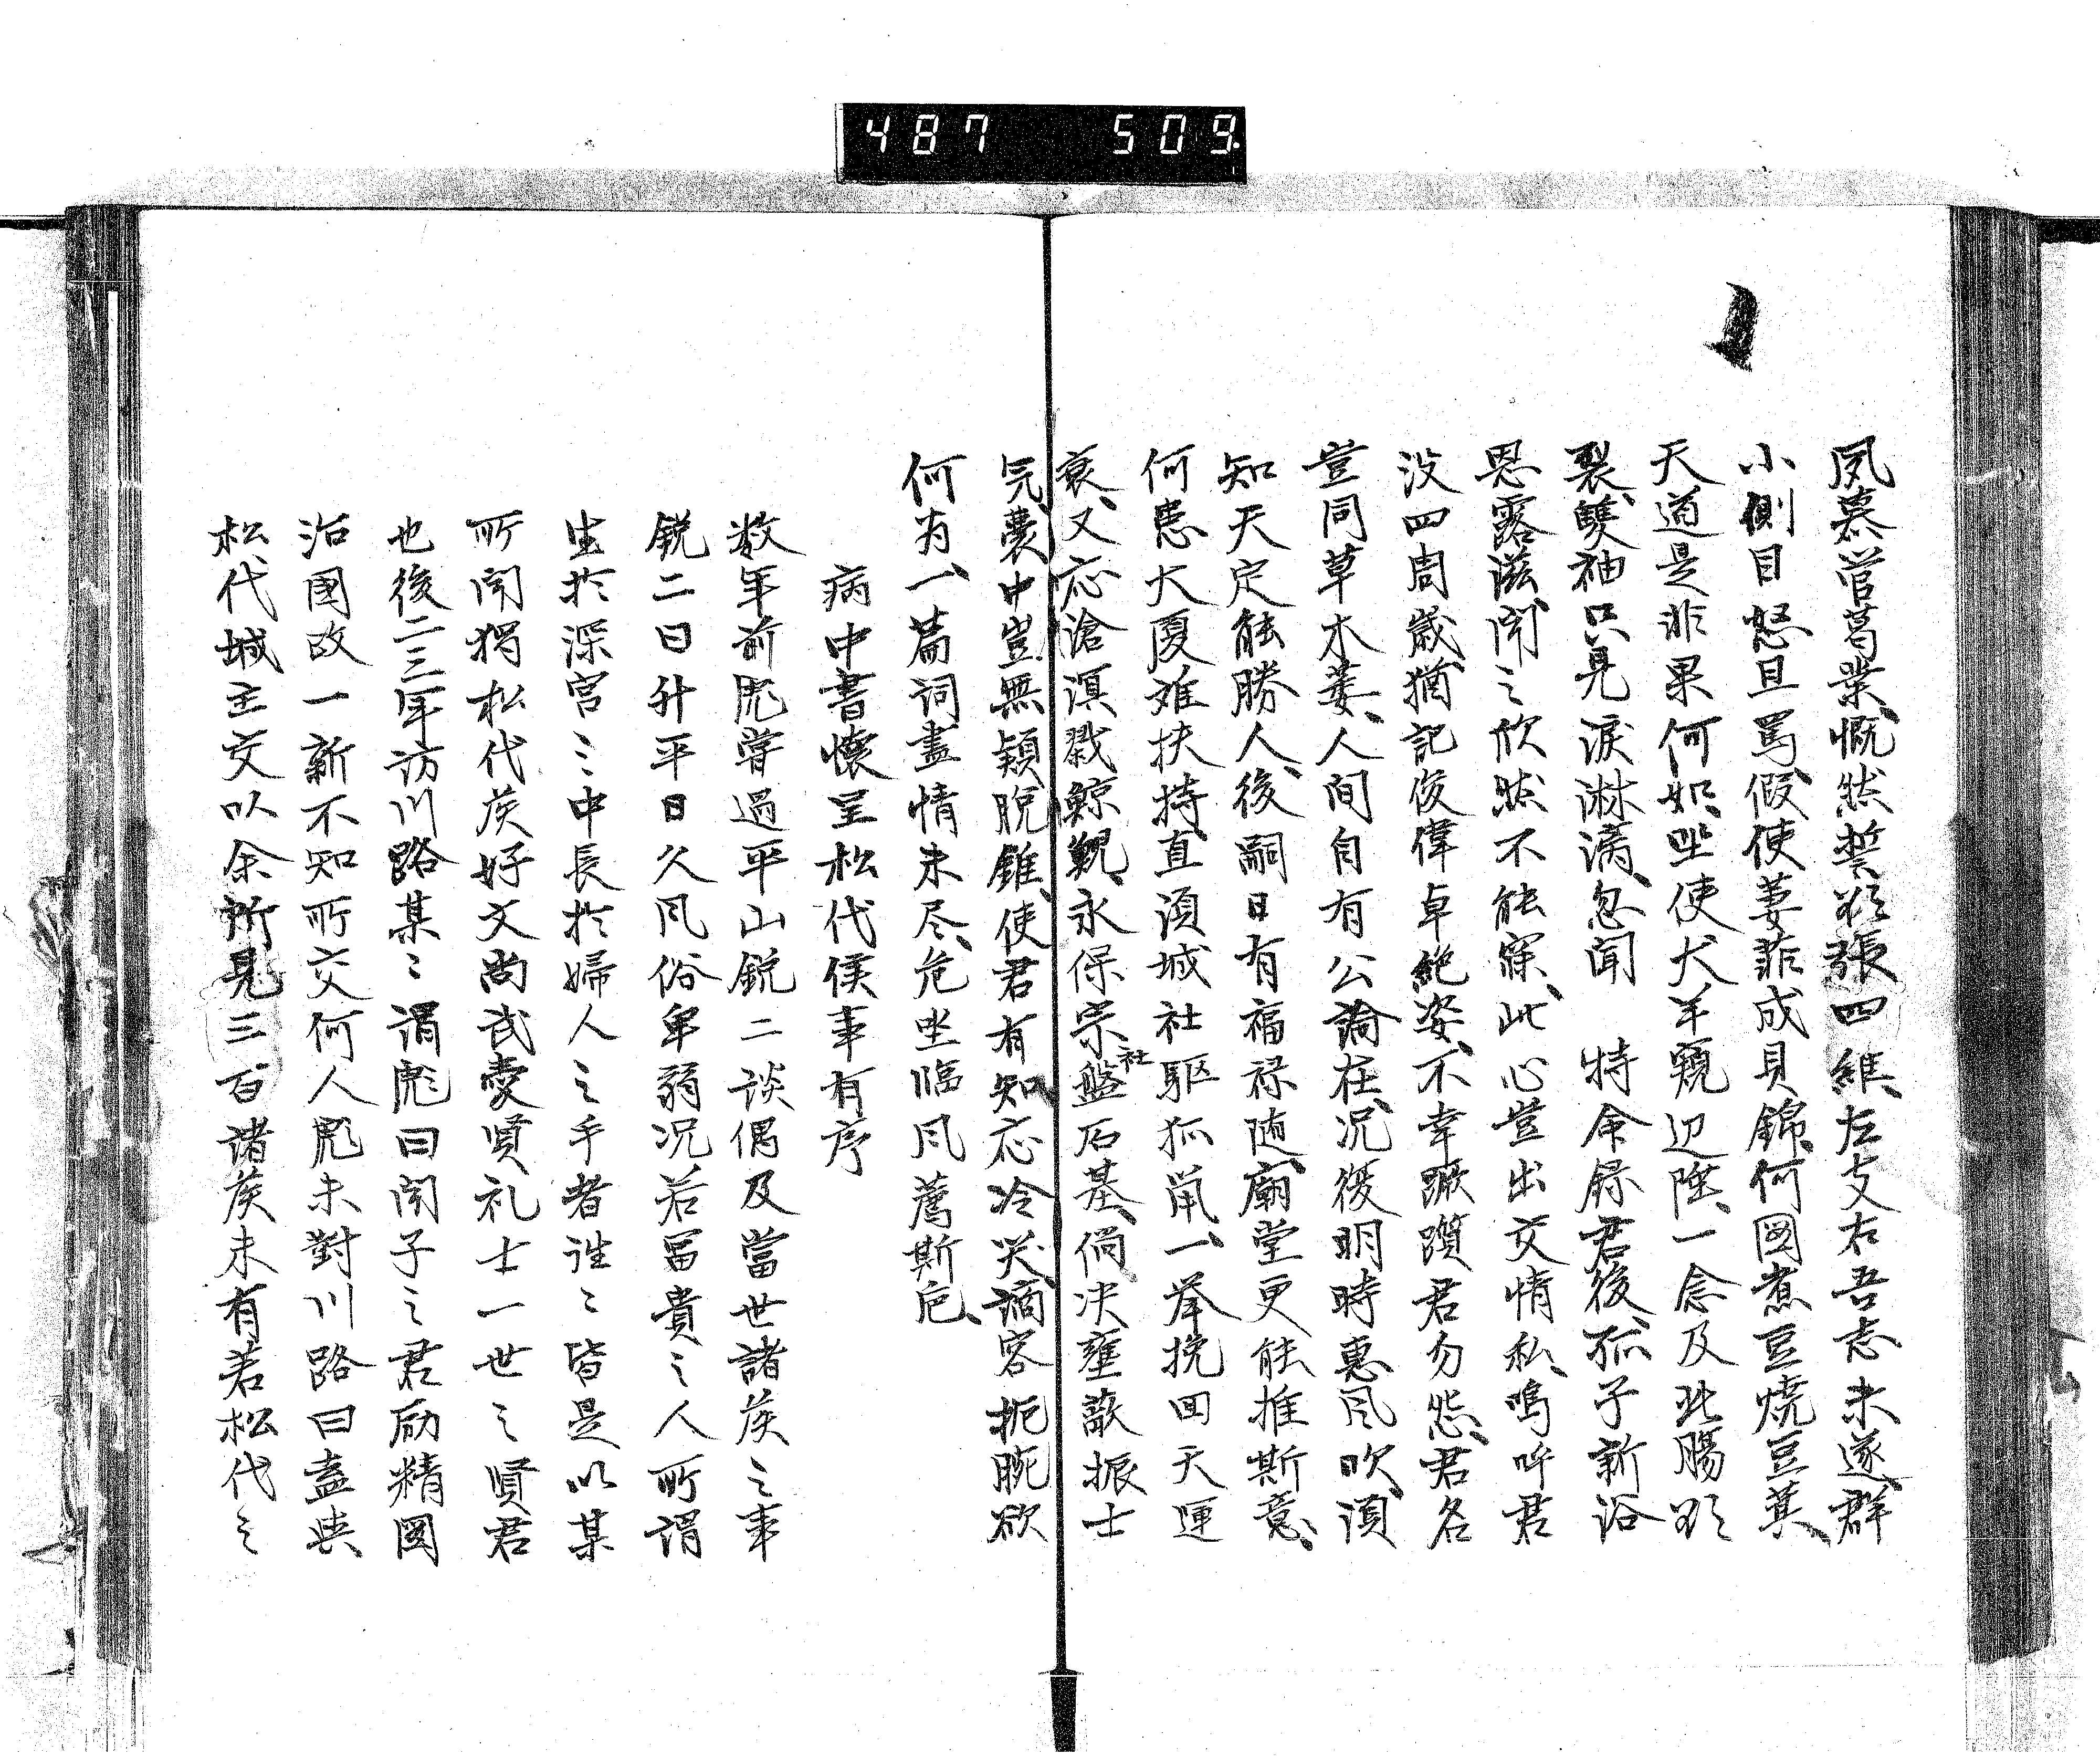 487 509
夙慕管葛業、慨然誓欲張四維、左支右吾志未遂、群
小側目怒且罵、假使萋菲成貝錦、何國煮豆燒豆萁、
天道是非果何如、坐使犬羊窺辺陲、一念及此腸欲
裂、雙袖只見淚淋漓、忽聞 特命錄君後、孤子新浴
恩露滋、聞之欣然不能寐、此心豈出交情私、嗚呼君
没四周歲、猶記俊偉卓絶姿、不幸蹶躓君勿怨、君名
豈同草木萎、人間自有公論在、況復明時惠風吹、須
知天定能勝人、後嗣日有福禄随、廟堂更能推斯意、
何患大厦难扶持、直須城社駆狐鼠、一挙挽回天運
衰、又応滄溟戮鯨鯢、永保宗社盤石基、倘決壅蔽振士
気、嚢中豈無穎脱錐、使君有知応冷笑、謫客扼腕欲
何为、一篇詞盡情未尽、危坐临風薦斯巵、
病中書懷呈松代侯事有序
数年前彪嘗過平山鋭二談偶及當世諸侯之事
鋭二曰升平日久風俗卑弱況若冨貴之人所謂
生於深宮之中長於婦人之手者往々皆是以某
所聞獨松代侯好文尚武愛賢礼士一世之賢君
也後二三年訪川路某々謂彪曰聞子之君励精圖
治國政一新不知所交何人彪未對川路曰盍與
松代城主交以余所見三百諸侯未有若松代之